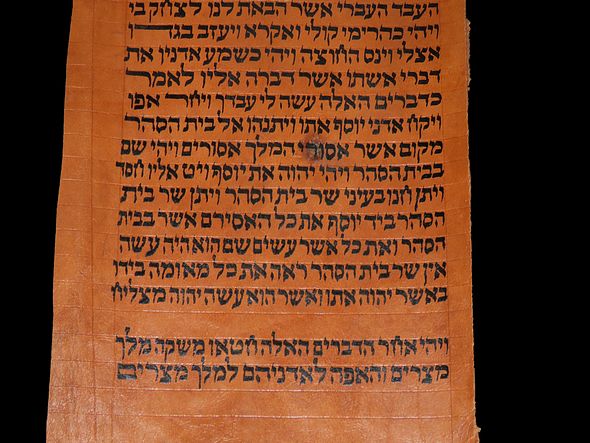 העבד העברי אשר הבאת לנו לצחק בי
ויהי כהרימי קולי ואקרא ויעזב בגדו
אצלי וינס החוצה ויהי כשמע אדניו את
דברי אשתו אשר דברה אליו לאמר
כדברים האלה עשה לי עבדך ויחר אפו
ויקח אדני יוסף אתו ויתנהו אל בית הסהר
מקום אשר אסורי המלך אסורים ויהי שם
בבית הסהר ויהי יהוה את יוסף ויט אליו חסד
ויתן חנו בעיני שר בית הסהר ויתן שר בית
הסהר ביד יוסף את כל האסירם אשר בבית
הסהר ואת כל אשר עשים שם הוא היה עשה
אין שר בית הסהר ראה את כל מאומה בידו
באשר יהוה אתו ואשר הוא עשה יהוה מצליח
ויהי אחר הדברים האלה חטאו משקה מלך
מצרים והאפה לאדניהם למלך מצרים